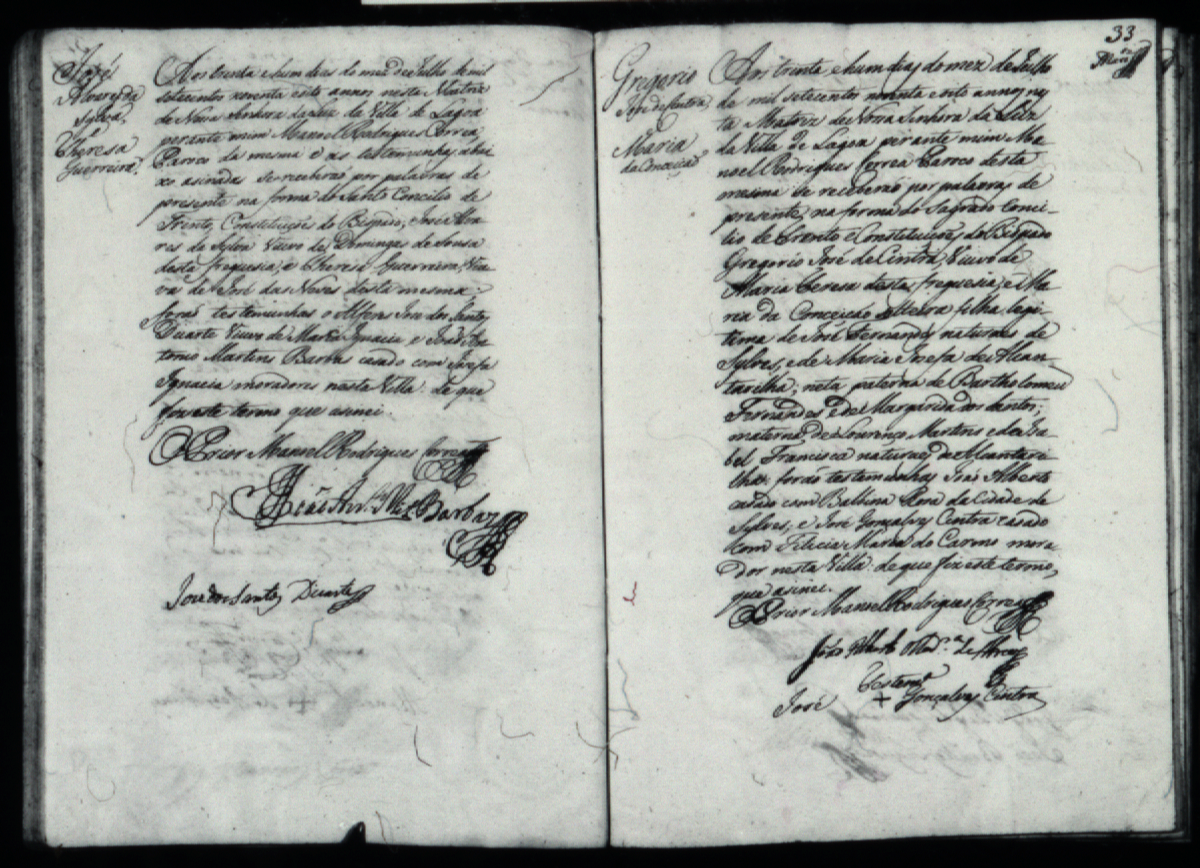 José
Alvares da
Sylva.
Theresa
Guerreira.
Aos trinta e hum dias do mez de Julho de mil
setecentos noventa e oito annos nesta Matriz
de Nossa Senhora da Luz da Villa de Lagoa
perante mim Manoel Rodrigues Correa
Paroco da mesma e as testemunhas abai-
xo asinadas se receberaõ por palavras de
presente na forma do Santo Concilio de
Trento, Constituiçoẽs do Bispado, José Alva-
res da Sylva Viuvo de Domingas de Sousa
desta freguesia, e Theresa Guerreira, Viu-
va de José das Neves desta mesma:
foraõ testemunhas o Alferes Jose dos Santos
Duarte Viuvo de Maria Ignacia e Joaõ An-
tonio Martins Barbas casado com Josefa
Ignacia moradores nesta Villa: de que
fiz este termo que asinei.
O Prior Manoel Rodrigues Correa
Joaõ Barbas
Jose dos Santos Duarte
33
Gregorio
Jose de Cintra.
Maria
da Conceição
Aos trinta e hum dias do mez de Julho
de mil setecentos noventa e oito annos nes-
ta Matriz de Nossa Senhora da Luz
da Villa de Lagoa perante mim Ma-
noel Rodrigues Correa Paroco desta
mesma se receberaõ por palavras de
presente, na forma do Sagrado Conci-
lio de Trento e Constituiçoẽs do Bispado
Gregorio José de Cintra, Viuvo de
Maria Teresa desta freguesia; e Ma-
ria da Conceiçaõ solteira filha legi-
tima de José Fernandes natural de
Sylves, e de Maria Josefa de Alcan-
tarilha; neta paterna de Bartholomeu
Fernandes e de Margarida dos Santos;
materna de Lourenço Martins e de Iza-
bel Francisca naturaes de Alcantari-
lha: foraõ testemunhas Joaõ Alberto
casado com Balbina Rosa da Cidade de
Sylves, e José Gonçalves Cintra casado
com Felicia Maria do Carmo mora-
dor nesta Villa: de que fiz este termo,
que asinei.
O Prior Manoel Rodrigues Correa
Joaõ Alberto
Testemª
José + Gonçalves Cintra